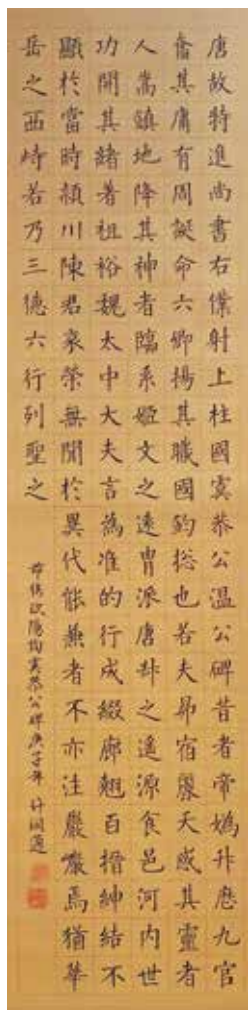 唐故特進尚書右僕射上柱國虞恭公溫公碑昔者帝媯升歷九官
奮其庸有周誕命六卿揚其職國鈞捴也若夫昴宿麗天感其靈者
人嵩鎮地降其神者臨系姬文之遠胄派唐叔之遙源食邑河內世
功開其緒著祖裕魏太中大夫言為准的行成綴廓翹百搢紳結不
顯於當時潁川陳君哀榮無聞於異代能兼者不亦注巖巖焉猶華
岳之西峙若乃三德六行列聖之
歐陽詢虞恭公碑庚子年